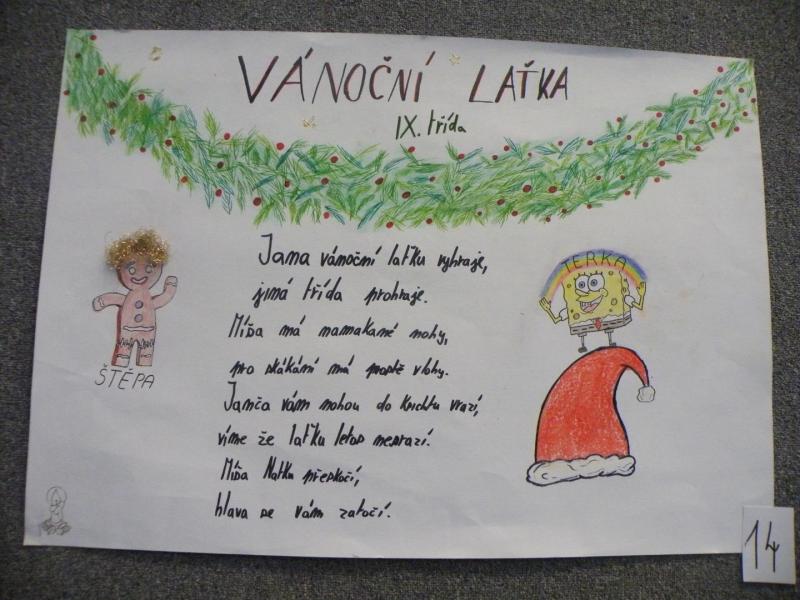 VÁNOČNÍ LAŤKA
IX. třída
Jana vánoční laťku vyhraje,
jiná třída prohraje.
Míša má namakané nohy,
pro skákání má prostě vlohy.
Janča vám nohou do ksichtu vrazí,
víme že laťku letos nesrazí.
Míša Natku přeskočí,
hlava se vám zatočí.
ŠTĚPA
TERKA
14